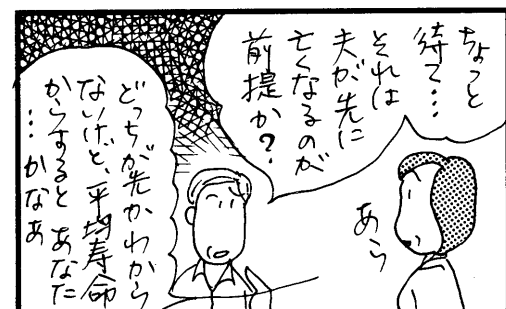 ちょっと
待て…
それは
夫が先に
亡くなるのが
前提か?
あら
どっちが先かわから
ないけど、平均寿命
からすると あなた
…かなあ